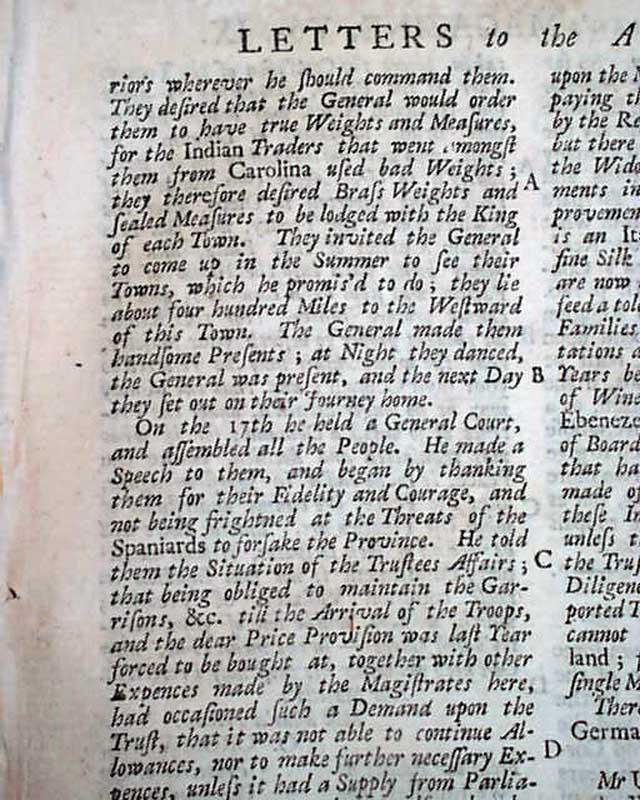 LETTERS to the A
riors wherever he ſhould command them.
They deſired that the General would order
them to have true Weights and Meaſures,
for the Indian Traders that went amongſt
them from Carolina uſed bad Weights;
they therefore deſired Braſs Weights and A
ſealed Meaſures to be lodged with the King
of each Town. They invited the General
to come up in the Summer to ſee their
Towns, which he promis'd to do; they lie
about four hundred Miles to the Weſtward
of this Town. The General made them
handſome Preſents; at Night they danced,
the General was preſent, and the next Day B
they ſet out on their Journey home.
On the 17th he held a General Court,
and aſſembled all the People. He made a
Speech to them, and began by thanking
them for their Fidelity and Courage, and
not being frightned at the Threats of the
Spaniards to forſake the Province. He told
them the Situation of the Truſtees Affairs; C
that being obliged to maintain the Gar-
riſons, &c. till the Arrival of the Troops,
and the dear Price Proviſion was laſt Year
forced to be bought at, together with other
Expences made by the Magiſtrates here,
had occaſioned ſuch a Demand upon the
Truſt, that it was not able to continue Al-
lowances, nor to make further neceſſary Ex- D
pences, unleſs it had a Supply from Parlia-
upon the
paying
by the Re
but there
the Wido
ments in
provemen
is an It
fine Silk
are now
feed a tole
Families
tations a
Years be
of Wine
Ebeneze
of Board
that ha
made of
theſe In
unleſs t
the Truſ
Diligen
ported T
cannot
land;
ſingle M
There
Germa
Mr W